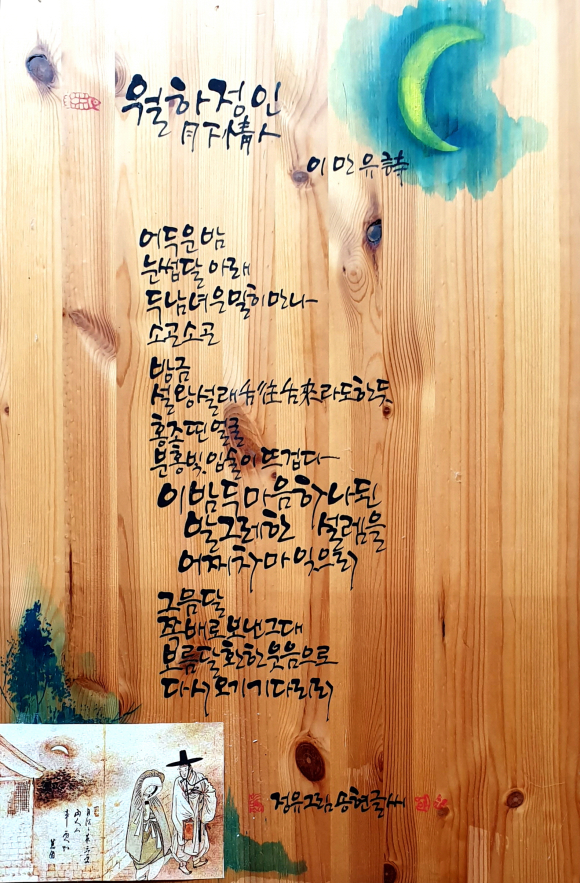 월하정인
月下情人
이만유 詩
어두운 밤
눈썹달 아래
두 남녀 은밀히 만나
소곤소곤
방금
설왕설래舌往舌來라도 한 듯
홍조 띤 얼굴
분홍빛 입술이 뜨겁다
이 밤 두 마음 하나 된
발그레한 설렘을
어찌 차마 잊으리
그믐달
쪽배로 보낸 그대
보름달 환한 웃음으로
다시 오기 기다리리
정유그림 송현글씨